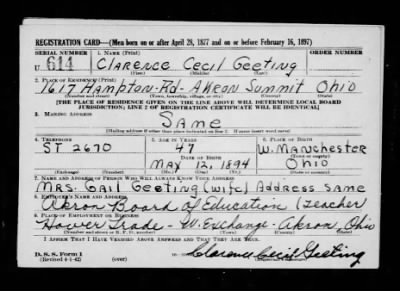 REGISTRATION CARD—(Men born on or after April 28, 1877 and on or before February 16, 1897)
SERIAL NUMBER 1. NAME (Print) ORDER NUMBER
U 614 CLARENCE CECIL GEETING
(First) (Middle) (Last)
2. PLACE OF RESIDENCE (Print)
1617 HAMPTON-Rd-AKRON SUMMIT OHIO
(Number and street) (Town, township, village, or city) (County) (State)
[THE PLACE OF RESIDENCE GIVEN ON THE LINE ABOVE WILL DETERMINE LOCAL BOARD
JURISDICTION; LINE 2 OF REGISTRATION CERTIFICATE WILL BE IDENTICAL]
3. MAILING ADDRESS
SAME
[Mailing address if other than place indicated on line 2. If same insert word same]
4. TELEPHONE 5. AGE IN YEARS 6. PLACE OF BIRTH
ST 2670 47 W. MANCHESTER
DATE OF BIRTH (Town or county)
MAY 12, 1894 OHIO
(Mo.) (Day) (Yr.) (State or country)
7. NAME AND ADDRESS OF PERSON WHO WILL ALWAYS KNOW YOUR ADDRESS
MRS. GAIL GEETING (wife) ADDRESS SAME
8. EMPLOYER'S NAME AND ADDRESS
Akron Board of Education (teacher)
9. PLACE OF EMPLOYMENT OR BUSINESS
Hower Trade - W. Exchange - Akron, Ohio
(Number and street or R. F. D. number) (Town) (County) (State)
I AFFIRM THAT I HAVE VERIFIED ABOVE ANSWERS AND THAT THEY ARE TRUE.
D. S. S. Form 1
(Revised 4-1-42) (over) Clarence Cecil Geeting